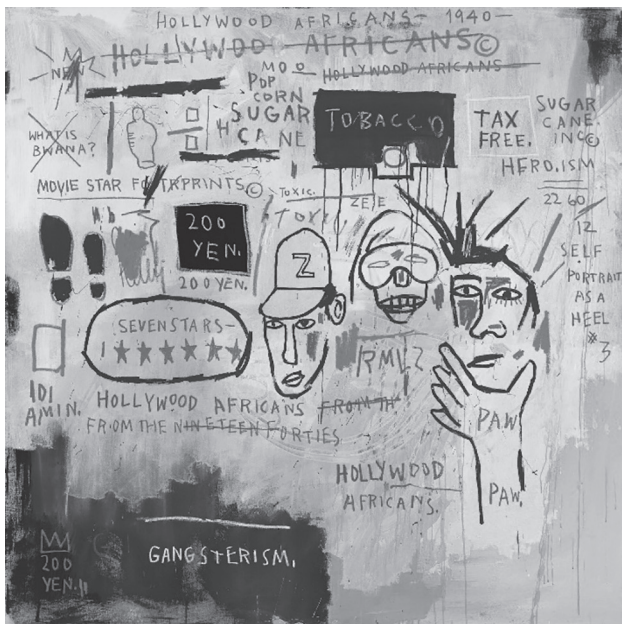 HOLLYWOOD AFRICANS - 1940 -
HOLLYWOOD AFRICANS©
HOLLYWOOD AFRICANS
POP
CORN
SUGAR
CANE
TOBACCO
TAX
FREE.
SUGAR
CANE.
INC©
HERO.ISM
WHAT IS
BWANA?
MOVIE STAR FOOTPRINTS©
TOXIC.
22 60
12
200
YEN.
200 YEN.
Z
SELF
PORTRAIT
AS A
HEEL
#3
SEVEN STARS-
RMLZ
IDI
AMIN.
HOLLYWOOD AFRICANS FROM TH
FROM THE NINETEEN FORTIES
PAW
PAW.
HOLLYWOOD
AFRICANS.
GANGSTERISM.
200
YEN.